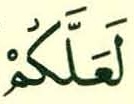 لَعَلَّكُمْ